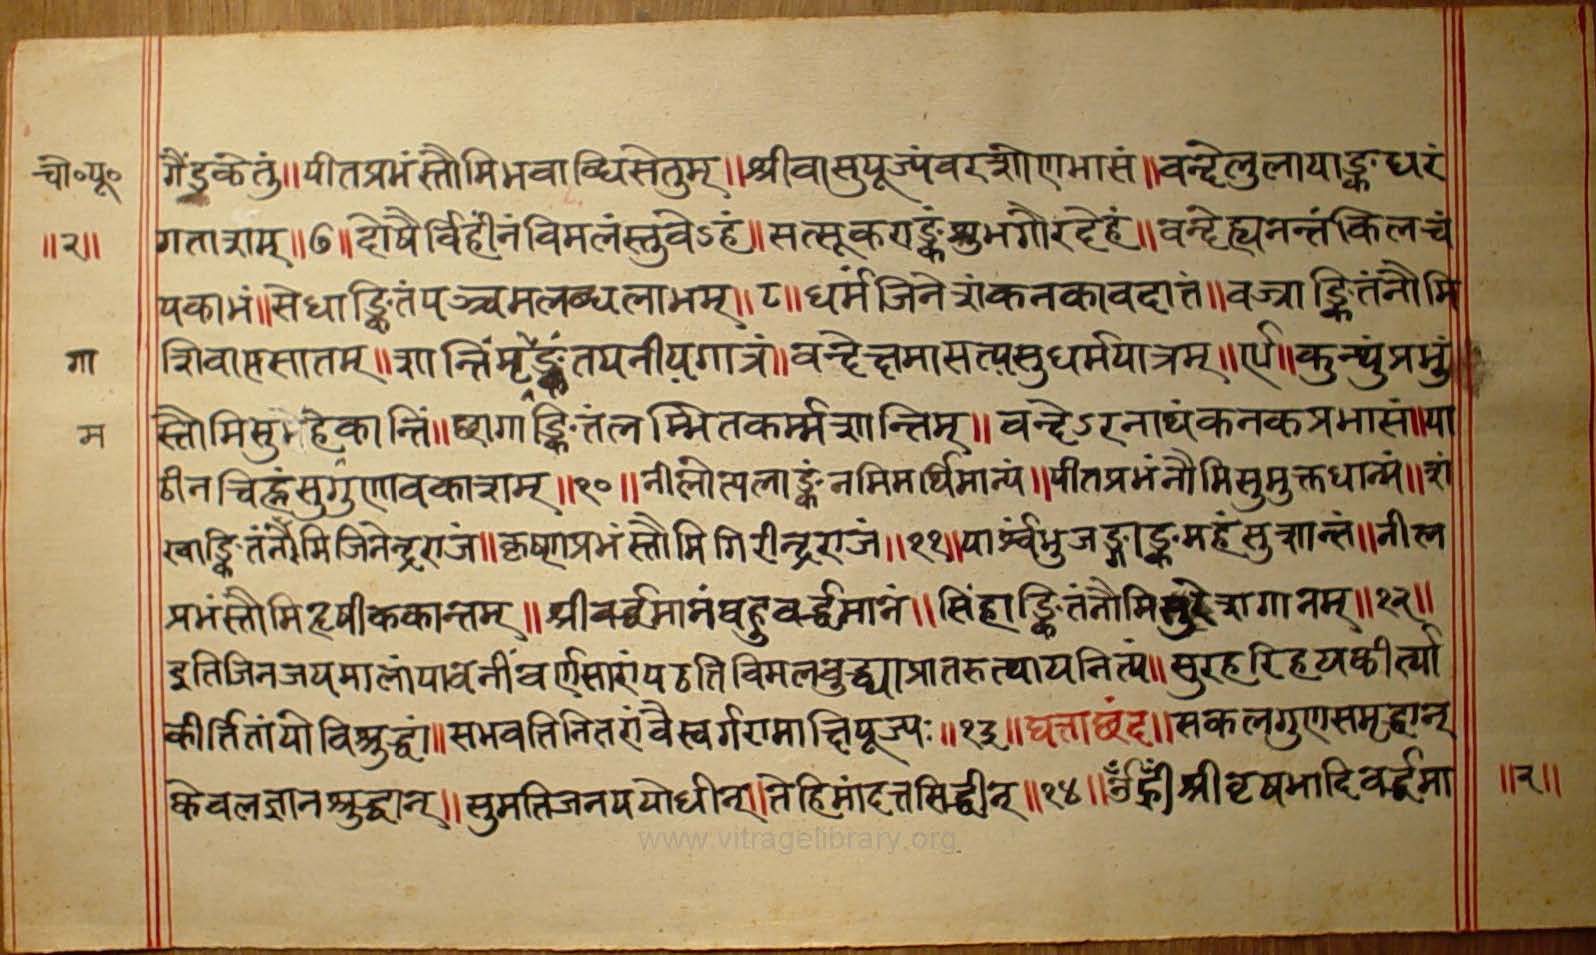 चौ॰पू॰ गैंडकेतुं॥पीतप्रभंस्तौमिभवाब्धिसेतुम्॥श्रीवासुपूज्यंवरशोणभासं॥वन्देलुलायाङ्कधरं
॥२॥ गताशम्॥७॥दोषैर्विहीनंविमलंस्तुवेऽहं॥सत्सूकराङ्कंशुभगौरदेहं॥वन्देह्यनन्तंकिलचं
पकाभं॥सेधाङ्कितंपञ्चमलब्धलाभम्॥८॥धर्मंजिनेशंकनकावदातं॥वज्राङ्कितंनौमि
गा शिवाप्तसातम्॥शान्तिंमृङ्कंतपनीयगात्रं॥वन्देक्षमासत्यसुधर्मपात्रम्॥९॥कुन्थुंप्रभुं
म स्तौमिसुहेकान्तिं॥छागाङ्कितंलम्भितकर्म्मशान्तिम्॥वन्देऽरनाथंकनकप्रभासं॥पा
ठीनचिह्नंसुगुणावकाशम्॥१०॥नीलोत्पलाङ्कंनमिमर्थिमान्यं॥पीतप्रभंनौमिसुमुक्तधान्यं॥शं
खाङ्कितंनौमिजिनेन्द्रराजं॥कृष्णप्रभंस्तौमिगिरीन्द्रराजं॥११॥पार्श्वंभुजङ्गाङ्कमहंसुशान्तं॥नील
प्रभंस्तौमिहृषीककान्तम्॥श्रीवर्द्धमानंबहुवर्द्धमानं॥सिंहाङ्कितंनौमिसुरेशगानम्॥१२॥
इतिजिनजयमालांपावनींवर्णसारांपठतिविमलबुद्ध्याप्रातरुत्थायनित्यं॥सुरहरिहयकीर्त्या
कीर्तितांयोविशुद्धां॥सभवतिनितरांवैस्वर्गरामाक्षिपूज्यः॥१३॥घत्ताछंद॥सकलगुणसमृद्धान्
केवलज्ञानशुद्धान्॥सुमतिजनपयोधीन्॥तेहिमांदत्तसिद्धीन्॥१४॥ॐह्रीँश्रीवृषभादिवर्द्धमा ॥२॥
www.vitragelibrary.org